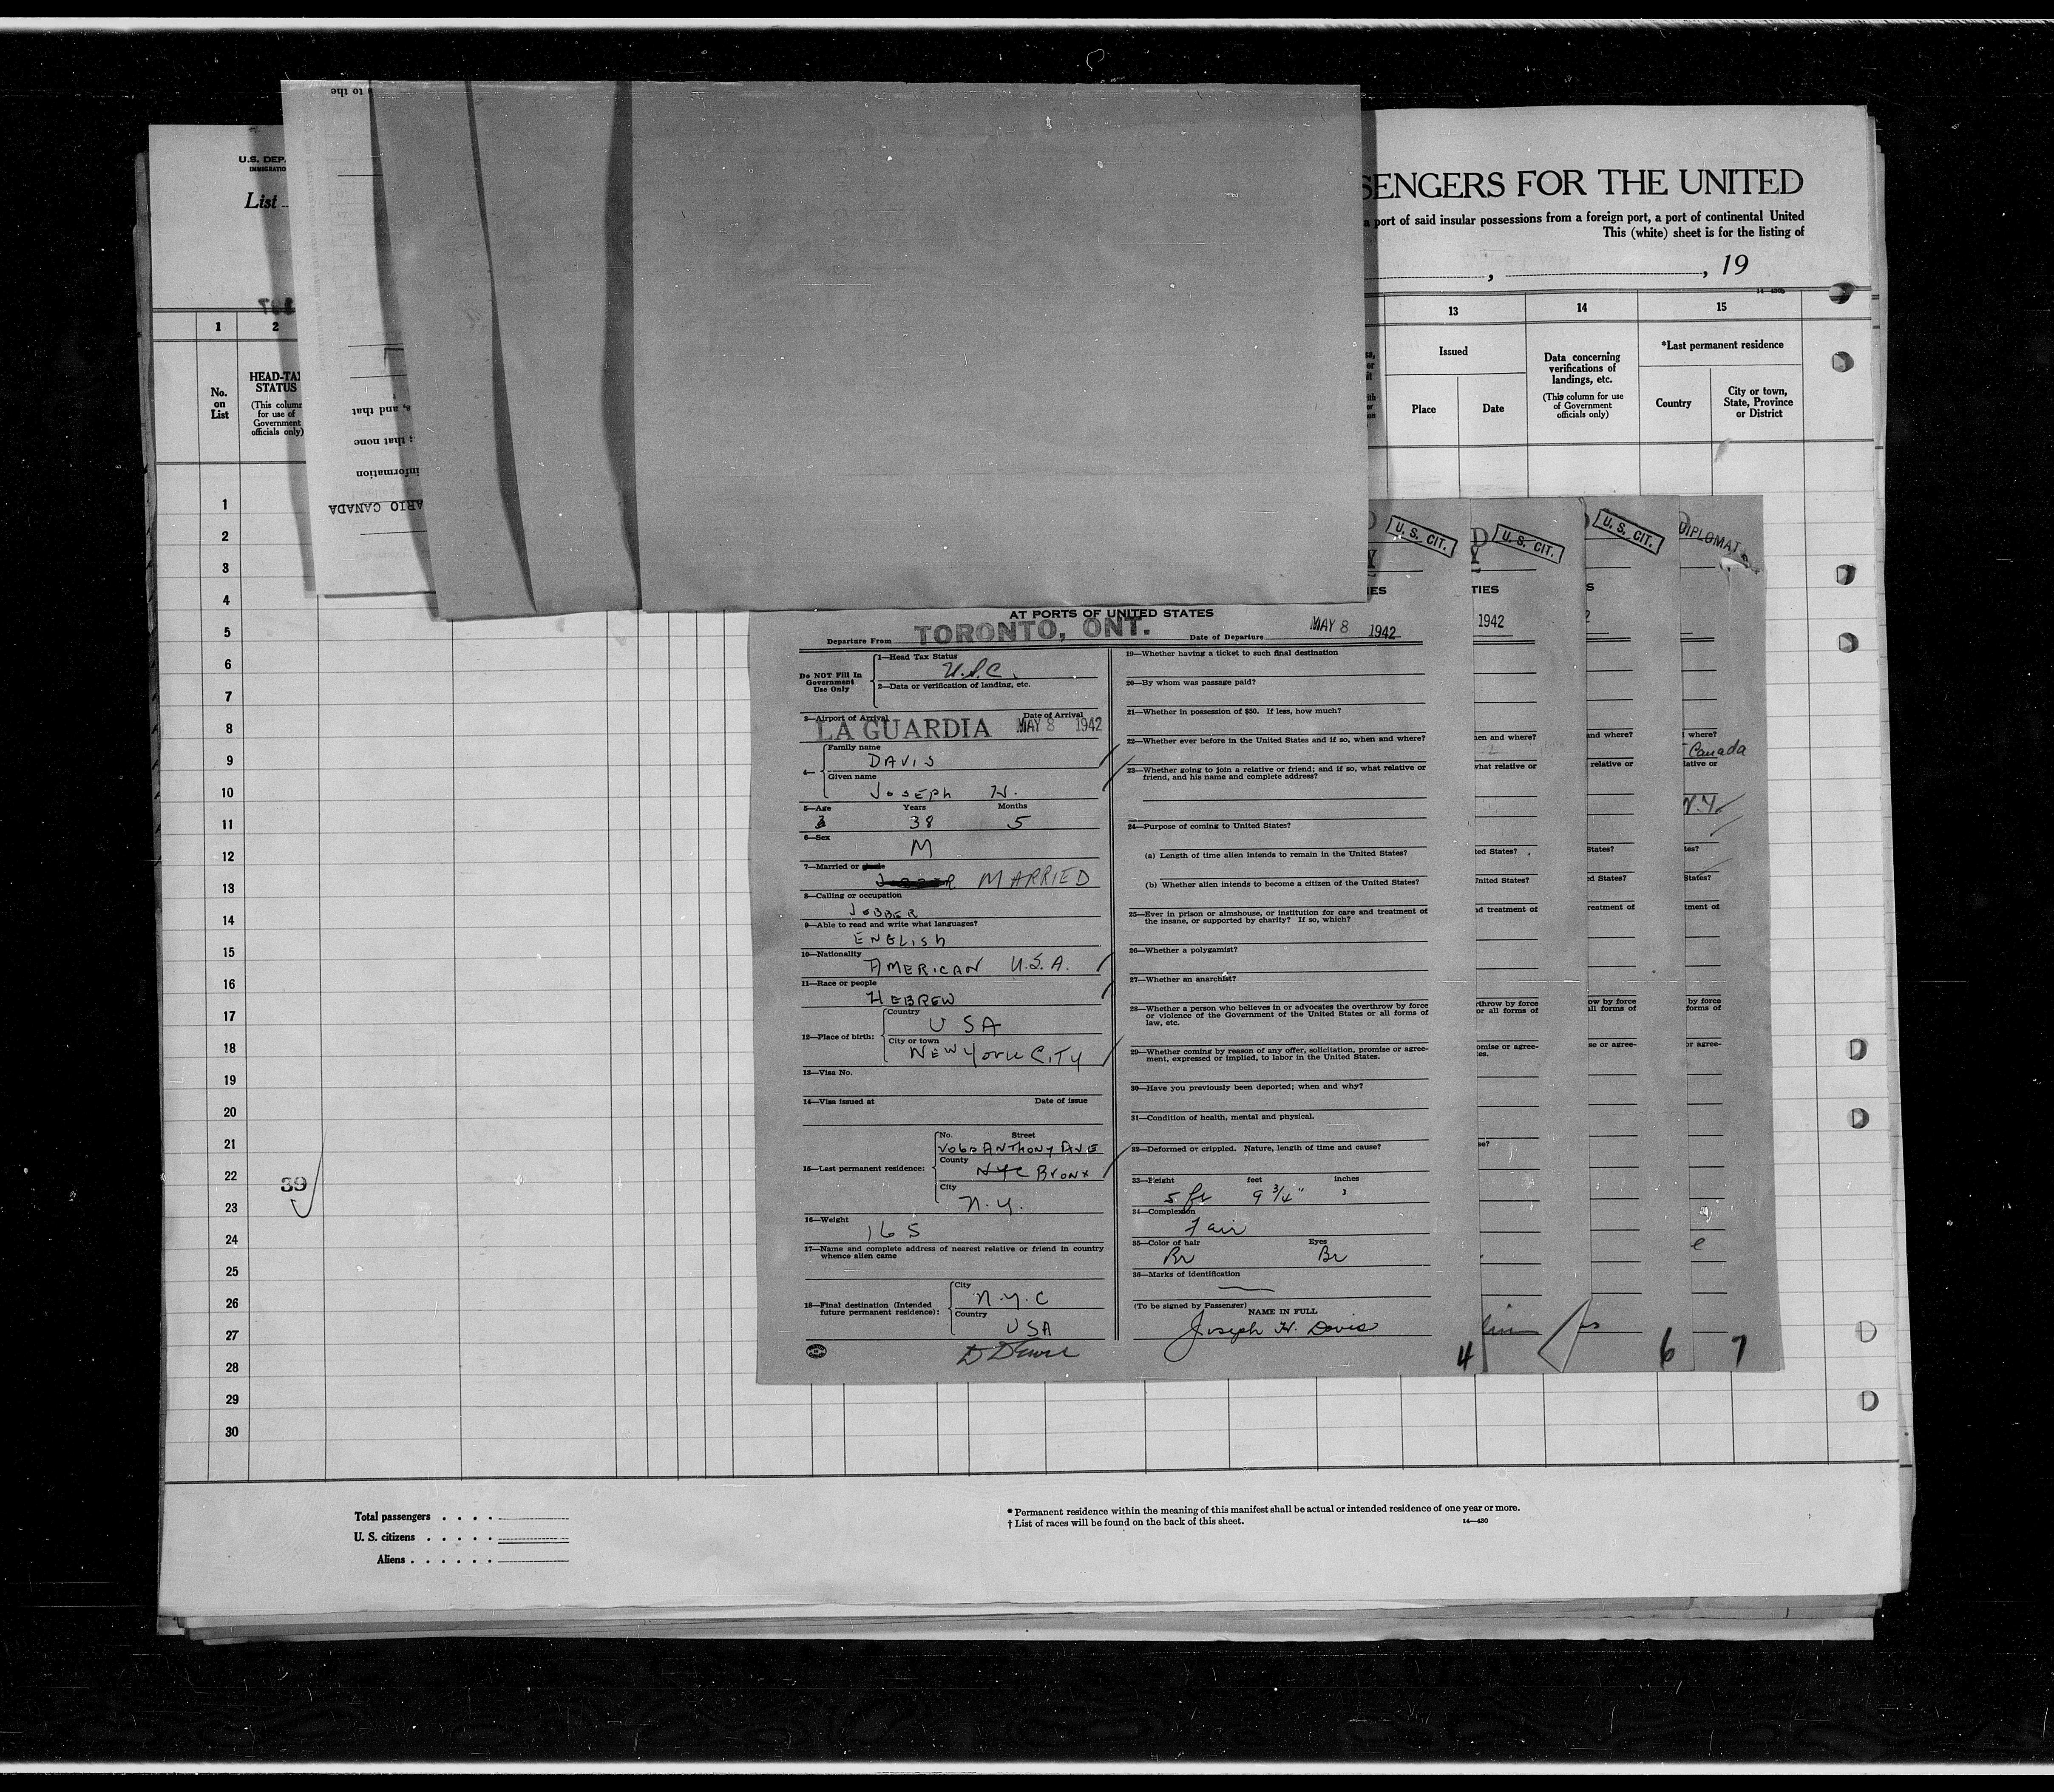 U.S. DEP.
IMMIGRATIO
List
SENGERS FOR THE UNITED
a port of said insular possessions from a foreign port, a port of continental United
This (white) sheet is for the listing of
, , 19
1 2 13 14 15
No. on List
HEAD-TAX STATUS
(This column for use of Government officials only)
Issued
Place Date
Data concerning verifications of landings, etc.
(This column for use of Government officials only)
*Last permanent residence
Country
City or town, State, Province or District
s to the
s, and that
; that none
information
ARIO CANADA
1
2
3
4
5
6
7
8
9
10
11
12
13
14
15
16
17
18
19
20
21
22
23
24
25
26
27
28
29
30
39
U. S. CIT.
U. S. CIT.
U. S. CIT.
DIPLOMAT
AT PORTS OF UNITED STATES
Departure From TORONTO, ONT. Date of Departure MAY 8 1942
Do NOT Fill In Government Use Only
1—Head Tax Status
U.S.C.
2—Data or verification of landing, etc.
3—Airport of Arrival Date of Arrival
LA GUARDIA MAY 8 1942
4—
Family name
DAVIS
Given name
JOSEPH H.
5—Age Years Months
38 5
6—Sex
M
7—Married or single
MARRIED
8—Calling or occupation
JOBBER
9—Able to read and write what languages?
ENGLISH
10—Nationality
AMERICAN U.S.A.
11—Race or people
HEBREW
12—Place of birth:
Country
USA
City or town
NEW YORK CITY
13—Visa No.
14—Visa issued at Date of issue
15—Last permanent residence:
No. Street
ANTHONY AVE
County
NYC BRONX
City
N.Y.
16—Weight
165
17—Name and complete address of nearest relative or friend in country whence alien came
18—Final destination (Intended future permanent residence):
City
N.Y.C
Country
USA
19—Whether having a ticket to such final destination
20—By whom was passage paid?
21—Whether in possession of $50. If less, how much?
22—Whether ever before in the United States and if so, when and where?
23—Whether going to join a relative or friend; and if so, what relative or
friend, and his name and complete address?
24—Purpose of coming to United States?
(a) Length of time alien intends to remain in the United States?
(b) Whether alien intends to become a citizen of the United States?
25—Ever in prison or almshouse, or institution for care and treatment of
the insane, or supported by charity? If so, which?
26—Whether a polygamist?
27—Whether an anarchist?
28—Whether a person who believes in or advocates the overthrow by force
or violence of the Government of the United States or all forms of
law, etc.
29—Whether coming by reason of any offer, solicitation, promise or agree-
ment, expressed or implied, to labor in the United States.
30—Have you previously been deported; when and why?
31—Condition of health, mental and physical.
32—Deformed or crippled. Nature, length of time and cause?
33—Height feet inches
5 ft 9 3/4"
34—Complexion
Fair
35—Color of hair Eyes
Br Br
36—Marks of identification
(To be signed by Passenger) NAME IN FULL
Joseph H. Davis
TIES
1942
Canada
N.Y.
4
6
7
Total passengers . . . .
U. S. citizens . . . . .
Aliens . . . . . .
* Permanent residence within the meaning of this manifest shall be actual or intended residence of one year or more.
† List of races will be found on the back of this sheet.
14—430